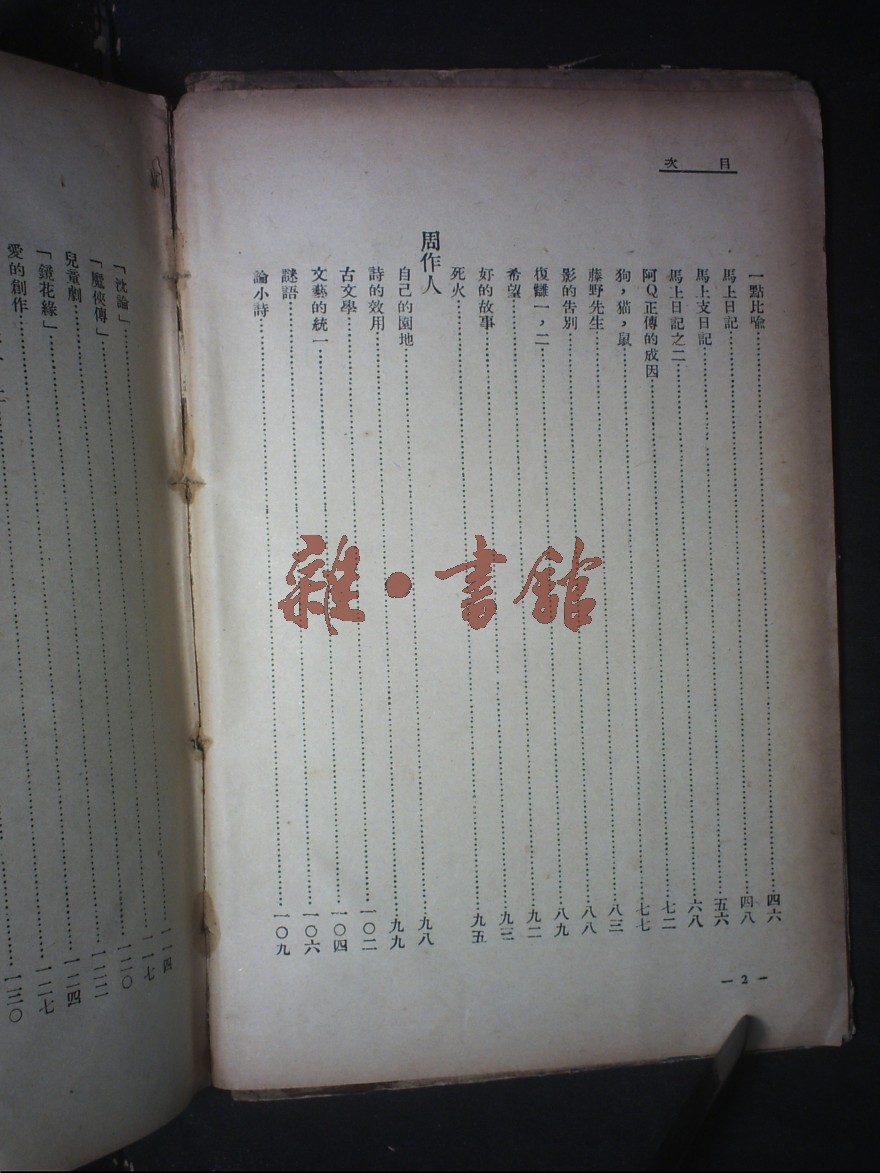 目次
一點比喩……四六
馬上日記……四八
馬上支日記……五六
馬上日記之二……六八
阿Q正傳的成因……七二
狗，猫，鼠……七七
藤野先生……八三
影的告別……八八
復讎一，二……八九
希望……九二
好的故事……九三
死火……九五
周作人
自己的園地……九八
詩的效用……九九
古文學……一〇二
文藝的統一……一〇四
謎語……一〇六
論小詩……一〇九
— 2 —
「沈論」……一一四
「魔俠傳」……一一七
兒童劇……一二〇
「鏡花緣」……一二二
愛的創作……一二四
一二七
一三〇
雜·書館